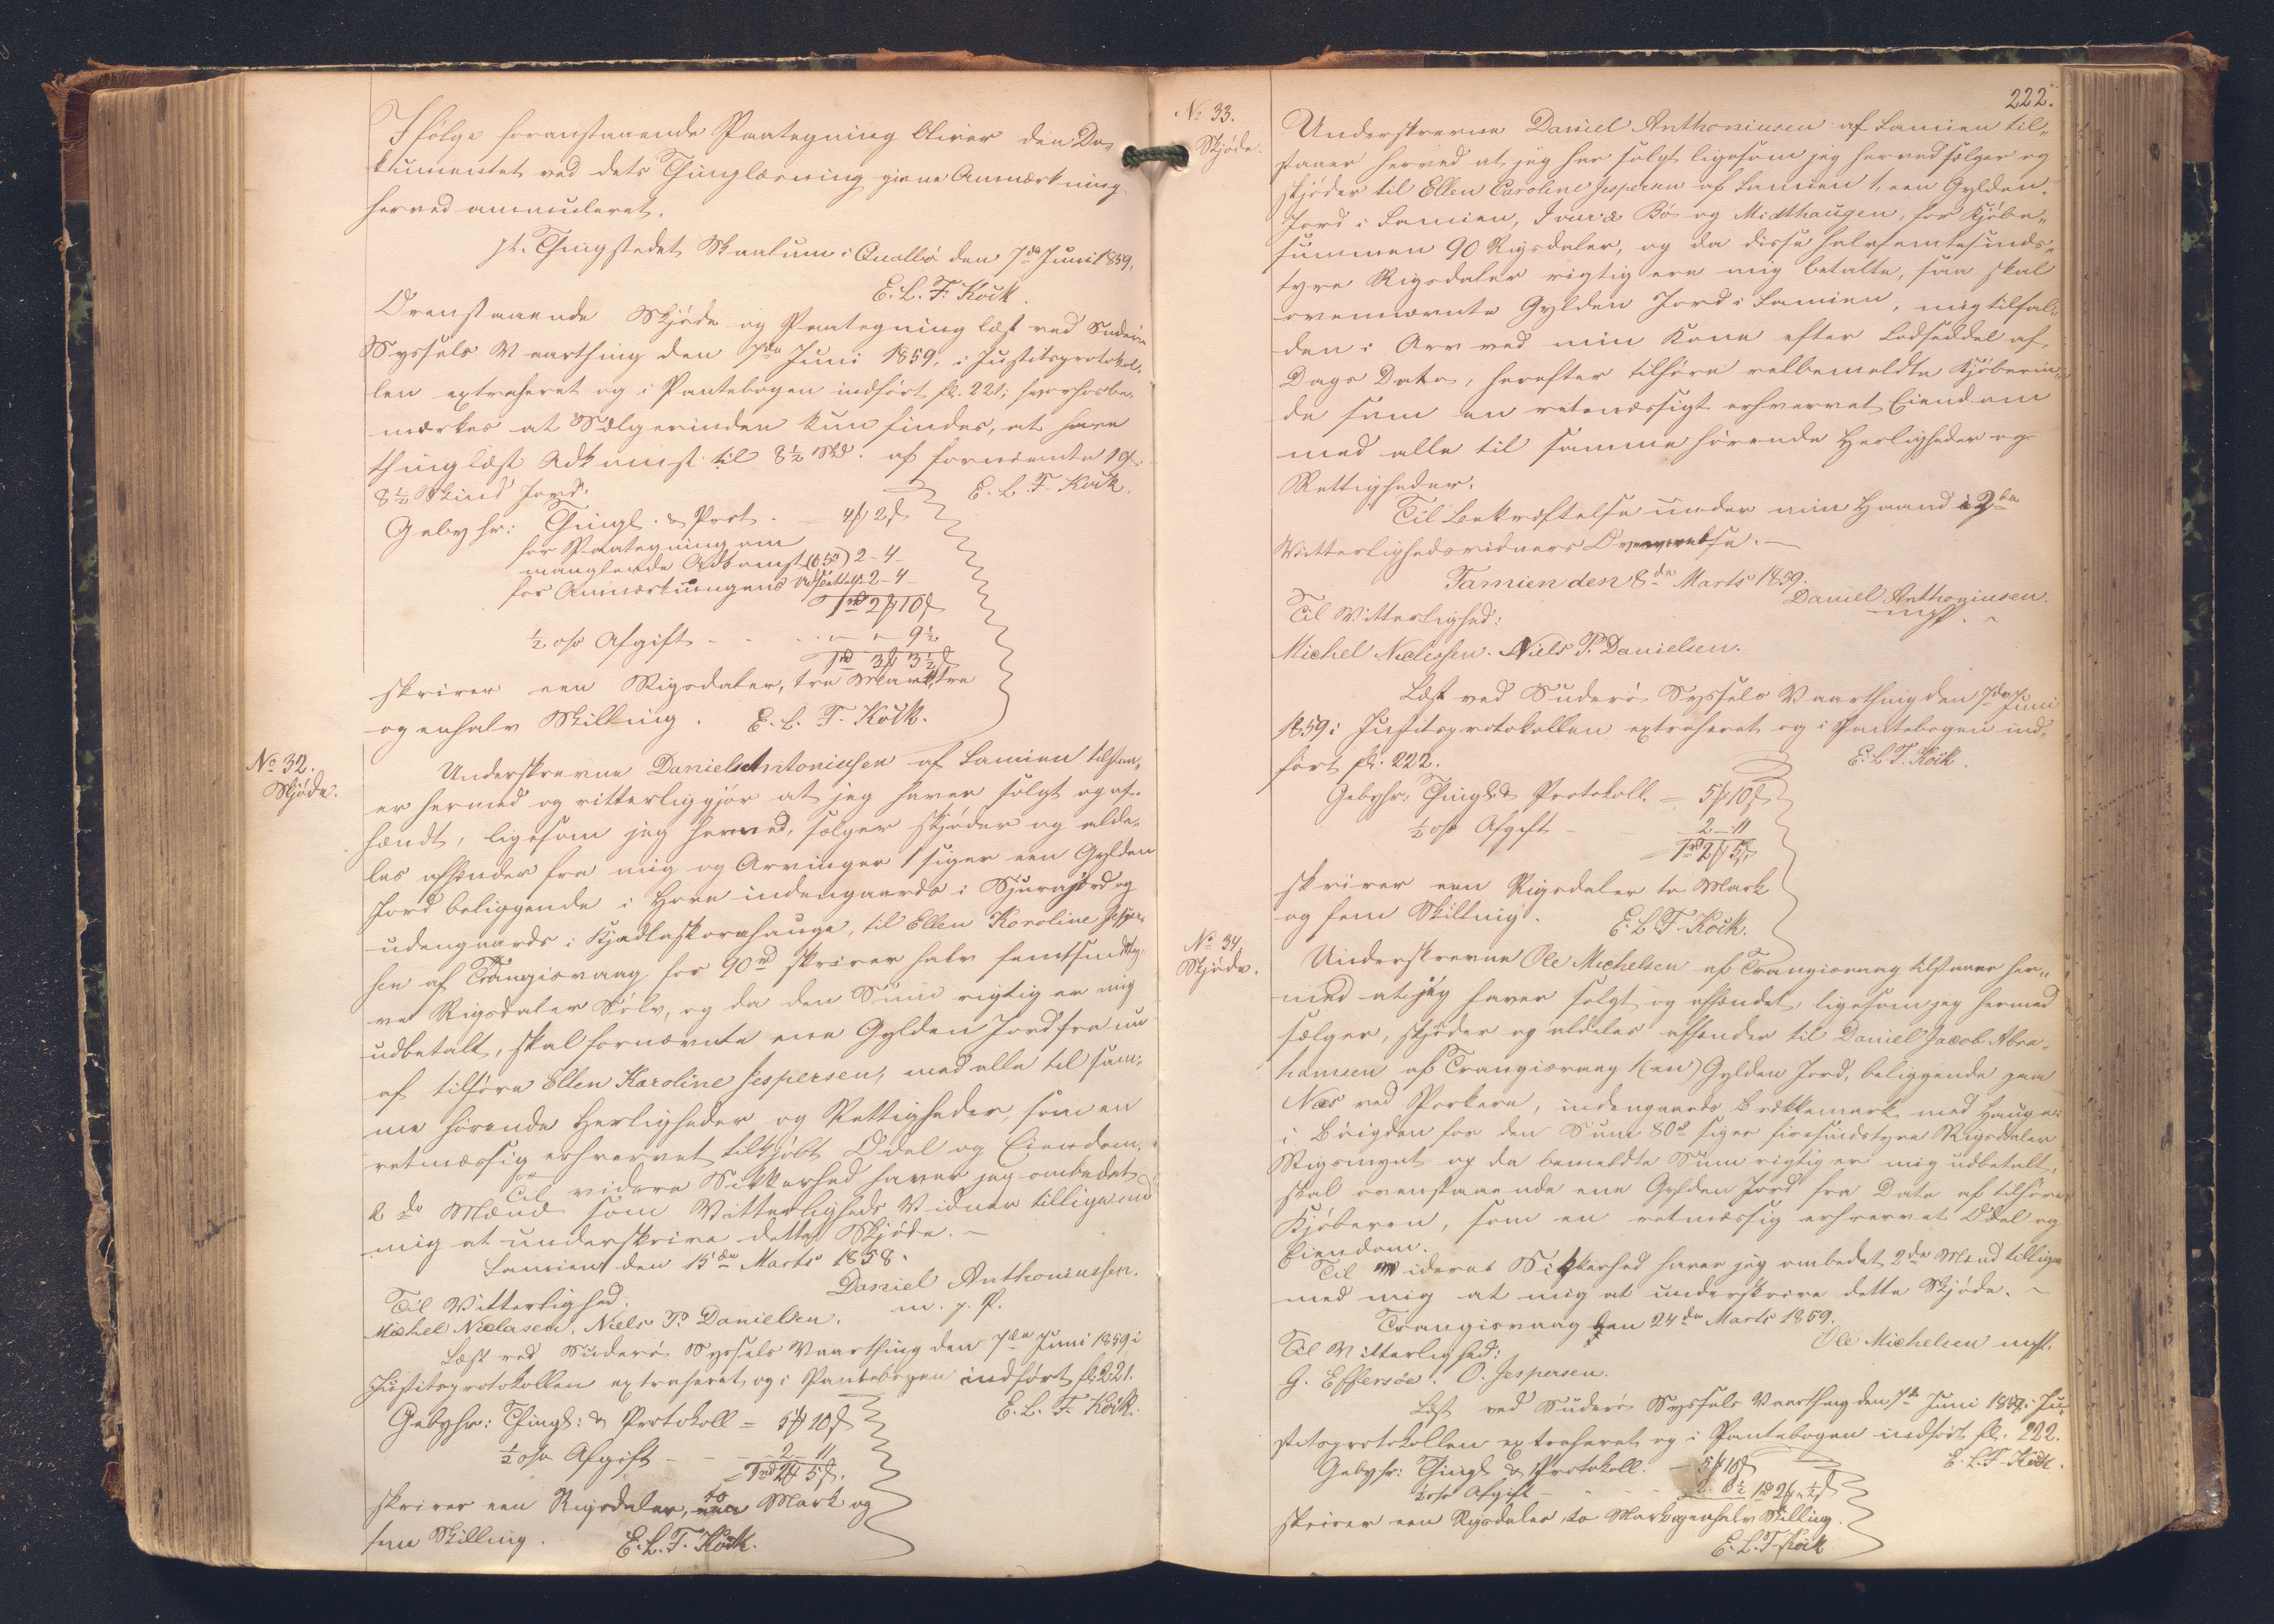 Ifölge foranstaaende Paategning bliver den Do-
kumentet ved dets Thinglæsning givne Anmærkning
herved annulleret.
pt. Thingstedet Skaalum i Qvalbö den 7de Juni 1859.
E. L. F. Kock.
Ovenstaaende Skjöde og Paategning læst ved Suderö
Syssels Vaarthing den 7de Juni 1859, i Justitsprotokol-
len extraheret og i Pantebogen indfört fl. 221; hvorhos be-
mærkes at Sælgerinden kun findes, at have
thinglæst Adkomst til 8½ Skd. af fornævnte 1 G.
8½ Skind Jord.
E. L. F. Kock.
Gebyhr: Thingl. & Prot. = 4 2
for Paategning om
manglende Adkomst 2-4
for Anmærkningens Udslettels: 2-4
1rd 2 10
½ o/o Afgift - - - 9½
1rd 3 3½
skriver een Rigsdaler, tre Mark, tre
og enhalv Skilling. E. L. F. Kock.
No 32.
Skjöde.
Underskrevne Daniel Antoniussen af Famien tilstaa-
er hermed og vitterliggjör at jeg haver solgt og af-
hændt, ligesom jeg herved, sælger skjöder og alde-
les afhænder fra mig og Arvinger 1 siger een Gylden
Jord beliggende i Hove indengaards i Sjurajord og
udengaards i Kjadlaskorahauge, til Ellen Karoline Jesper-
sen af Trangisvaag for 90rd skriver halv femtsindsty-
ve Rigsdaler Sölv, og da den Sum rigtig er mig
udbetalt, skal fornævnte ene Gylden Jord fra nu
af tilhöre Ellen Karoline Jespersen, med alle til sam-
me hörende Herligheder og Rettigheder, som en
retmæssig erhvervet tilkjöbt Odel og Eiendom.
Til videre Sikkerhed haver jeg ombedet
2de Mænd som Vitterligheds Vidner tilligemed
mig at underskrive dette Skjöde. -
Famien den 15de Marts 1858.
Daniel Anthoniussen.
m. p. P.
Til Vitterlighed:
Michel Niclasen. Niels P. Danielsen.
Læst ved Suderö Syssels Vaarthing den 7de Juni 1859 i
Justitsprotokollen extraheret og i Pantebogen indfört fl. 221.
E. L. F. Kock.
Gebyhr: Thingl: & Protokoll = 5 10
½ o/o Afgift - - 2-11
1rd 2 5
skriver een Rigsdaler, to Mark og
fem Skilling. E. L. F. Kock.
222.
No 33.
Skjöde.
Underskrevne Daniel Anthoniusen af Famien til-
staaer herved at jeg har solgt ligesom jeg herved sælger og
skjöder til Ellen Caroline Jespersen af Famien 1, een Gylden
Jord i Famien, Bö og Midthaugen, for Kjöbe-
summen 90 Rigsdaler, og da disse halvfemtesinds-
tyve Rigsdaler rigtig ere mig betalte, saa skal
ovennævnte Gylden Jord i Famien, mig tilfal-
den i Arv ved min Kone efter Lodseddel af
Dags Dato, herefter tilhöre velbemeldte Kjöberin-
de som en retmæssigt erhvervet Eiendom
med alle til samme hörende Herligheder og
Rettigheder.
Til Bekræftelse under min Haand i 2de
Vitterlighedsvidners Overværelse. -
Famien den 8de Marts 1859.
Daniel Anthoniusen.
Til Vitterlighed:
Michel Niclessen. Niels P. Danielsen.
Læst ved Suderö Syssels Vaarthing den 7de Juni
1859 i Justitsprotokollen extraheret og i Pantebogen ind-
fört fl. 222.
E. L. F. Kock.
Gebyhr: Thingl: & Protokoll. = 5 10
½ o/o Afgift - 2-11
1rd 2 5
skriver een Rigsdaler to Mark
og fem Skilling.
E. L. F. Kock.
No 34.
Skjöde.
Underskrevne Ole Michelsen af Trangisvaag tilstaaer her-
med at jeg haver solgt og afhændet, ligesom jeg hermed
sælger, skjöder og aldeles afhænder til Daniel Jacob Abra-
hamsen af Trangisvaag 1 (en) Gylden Jord, beliggende paa
Næs ved Porkere, indengaards Brekkemark med Hauge
i Böigden for den Sum 80rd siger firesindstyve Rigsdaler
Rigsmynt og da bemeldte Sum rigtig er mig udbetalt,
skal ovenstaaende ene Gylden Jord fra Dato af tilhöre
Kjöberen, som en retmæssig erhvervet Odel og
Eiendom.
Til videre Sikkerhed haver jeg ombedet 2de Mænd tillige
med mig at mig at underskrive dette Skjöde. -
Trangisvaag den 24de Marts 1859.
Ole Michelsen
Til Vitterlighed:
G. Effersöe. O. Jespersen.
Læst ved Suderö Syssels Vaarthing den 7de Juni 1859 i Ju-
stitsprotokollen extraheret og i Pantebogen indfört fl. 222.
E. L. F. Kock.
Gebyhr: Thingl: & Protokoll. - 5 10
½ o/o Afgift - - 2. 6½ 1rd 2 ½
skriver een Rigsdaler, to Mark og enhalv Skilling.
E. L. F. Kock